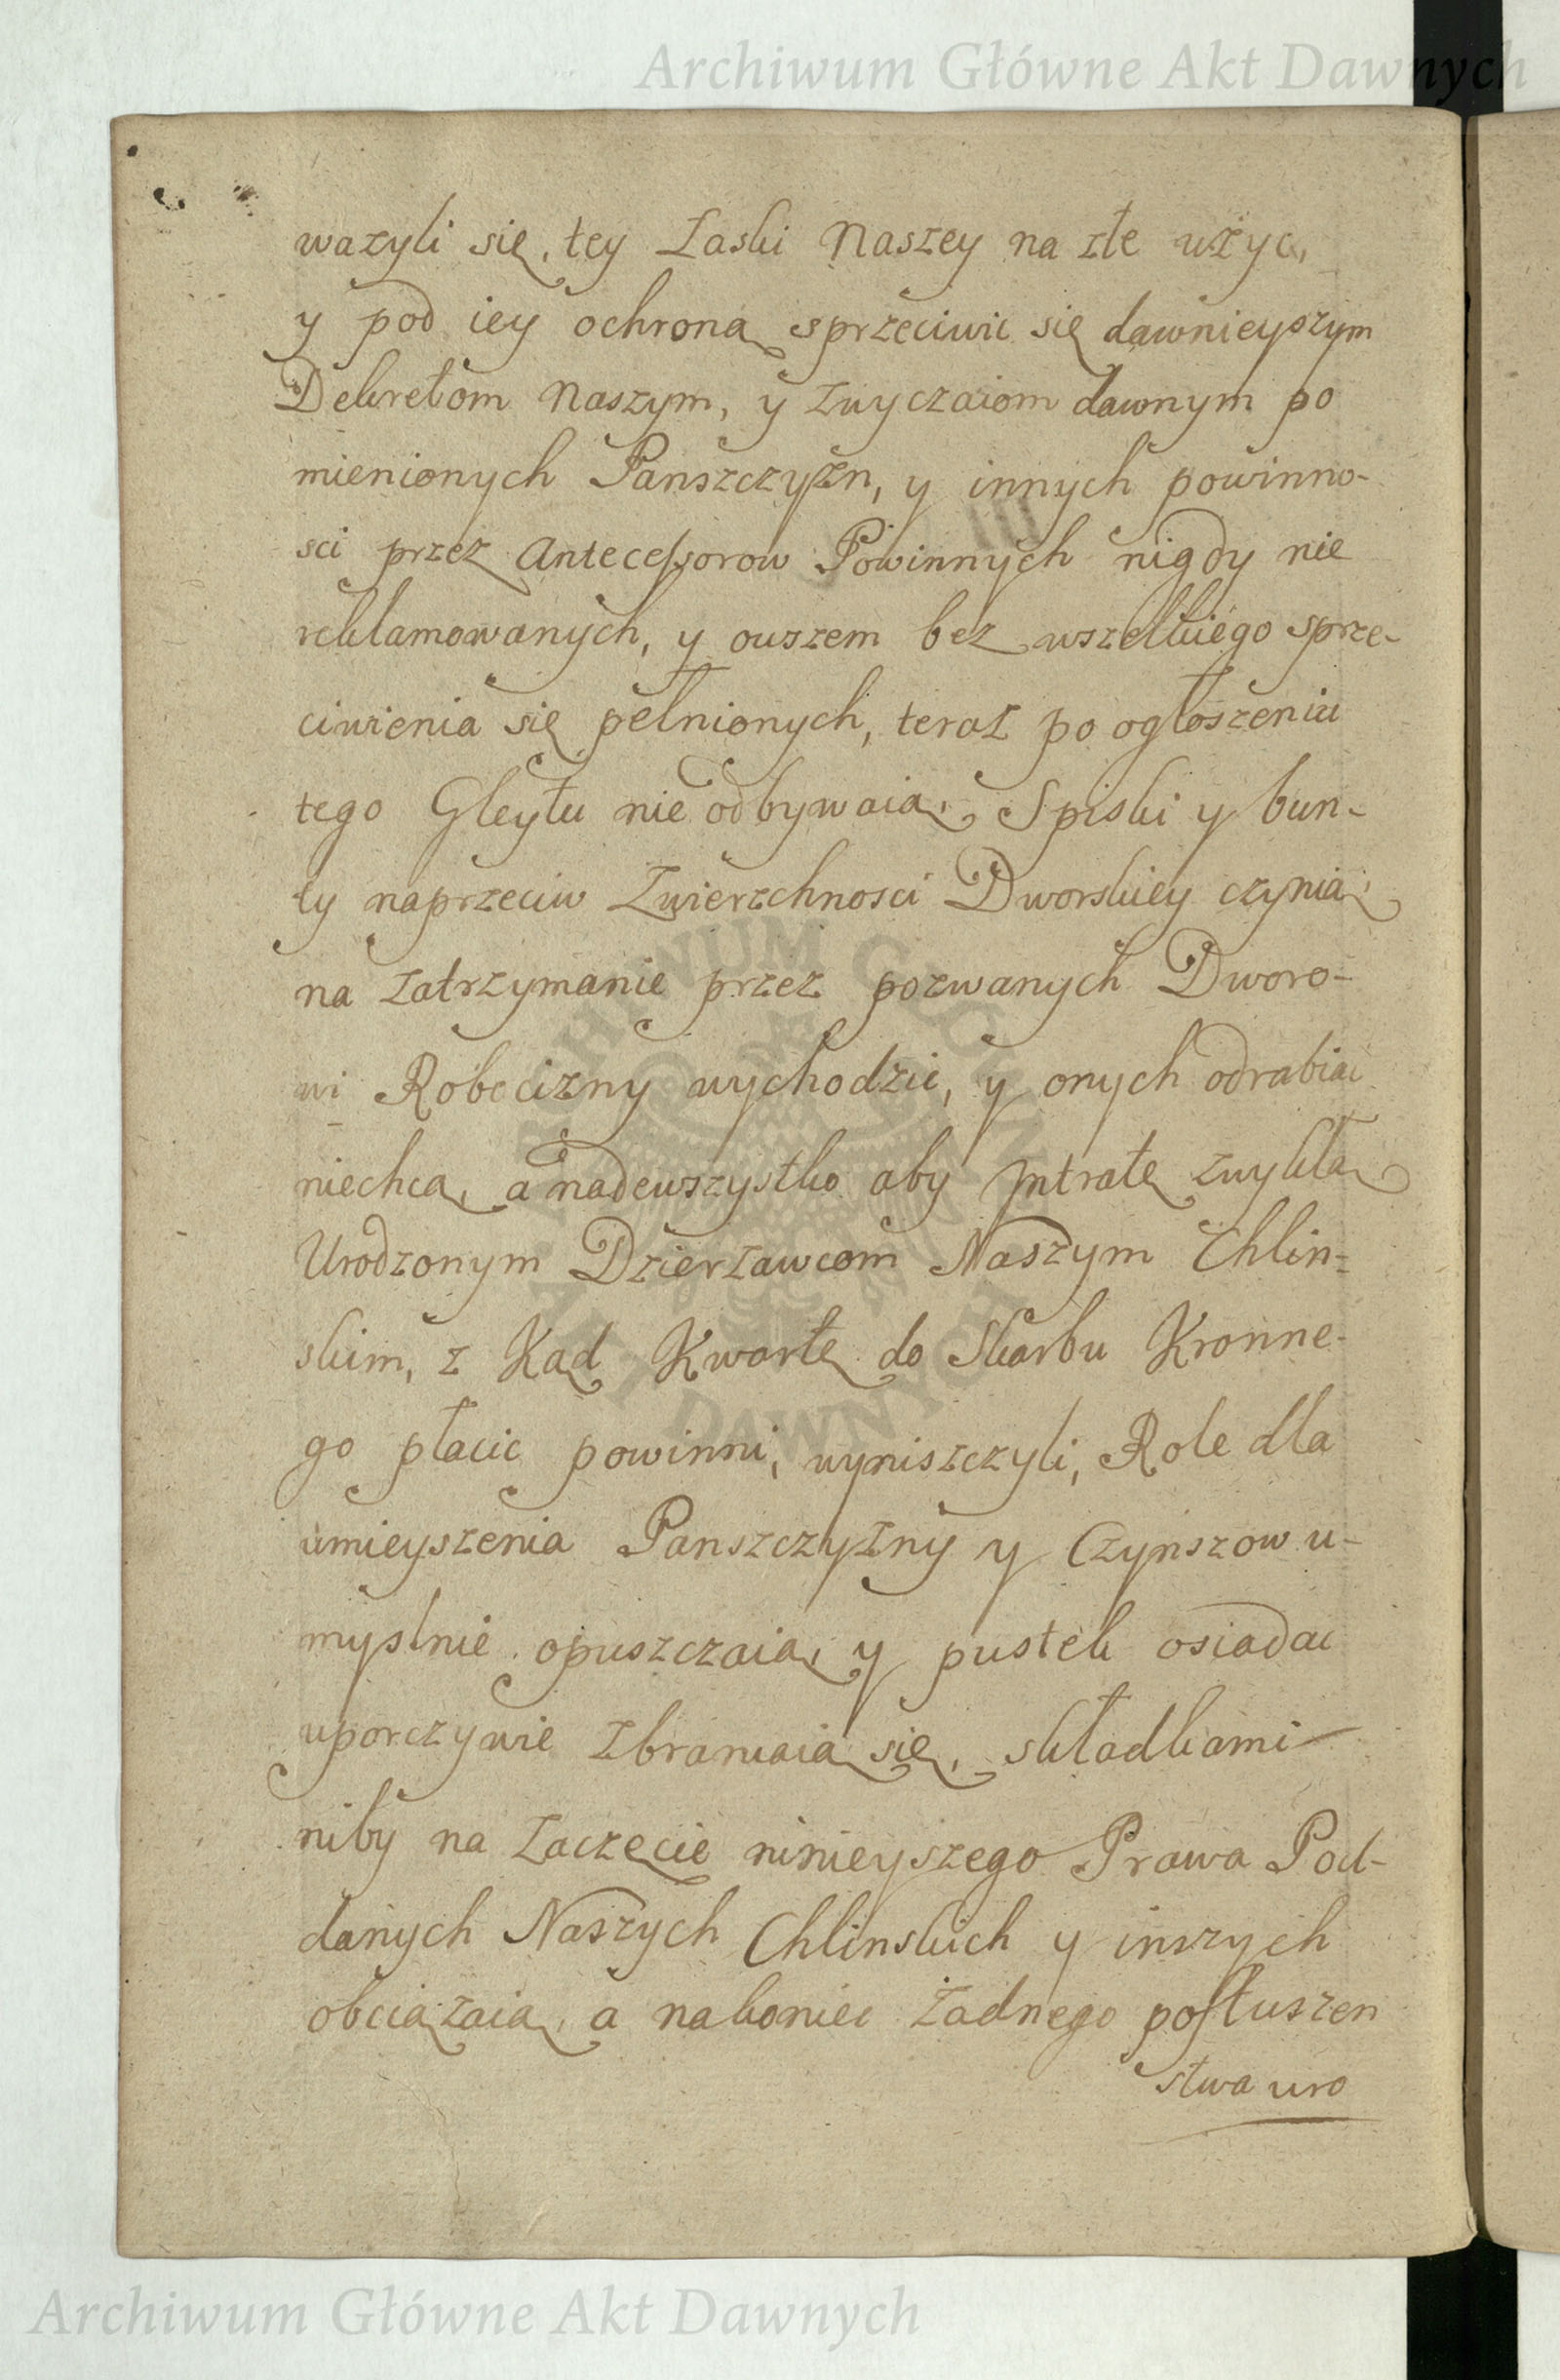 Archiwum Główne Akt Dawnych
wazyli się, tey Łaski Naszey na złe użyc,
y pod iey ochroną sprzeciwic się dawnieyszym
Dekretom Naszym, y zwyczaiom dawnym po
mienionych Panszczyzn, y innych powinno-
sci przez Antecessorow Powinnych nigdy nie
reklamowanych, y owszem bez wszelkiego sprze-
ciwienia się pełnionych, teraz po ogłoszeniu
tego Gleytu nie odbywaią, Spiski y bun-
ty naprzeciw Zwierzchnosci Dworskiey czynią,
na zatrzymanie przez pozwanych Dworo-
wi Robocizny wychodzic, y onych odrabiac
niechcą, a nadewszystko aby Jntratę zwykłą
Urodzonym Dzierzawcom Naszym Chlin-
skim, z Kąd Kwartę do Skarbu Kronne-
go płacic powinni, wyniszczyli, Role dla
umieyszenia Panszczyzny y Czynszow u-
myslnie opuszczaią, y pustek osiadac
uporczywie zbraniaią się, składkami
niby na zaczęcie ninieyszego Prawa Pod-
danych Naszych Chlinskich y inszych
obciązaią, a nakoniec żadnego posłuszen
stwa uro
ARCHIWUM GŁÓWNE
AKT DAWNYCH
Archiwum Główne Akt Dawnych